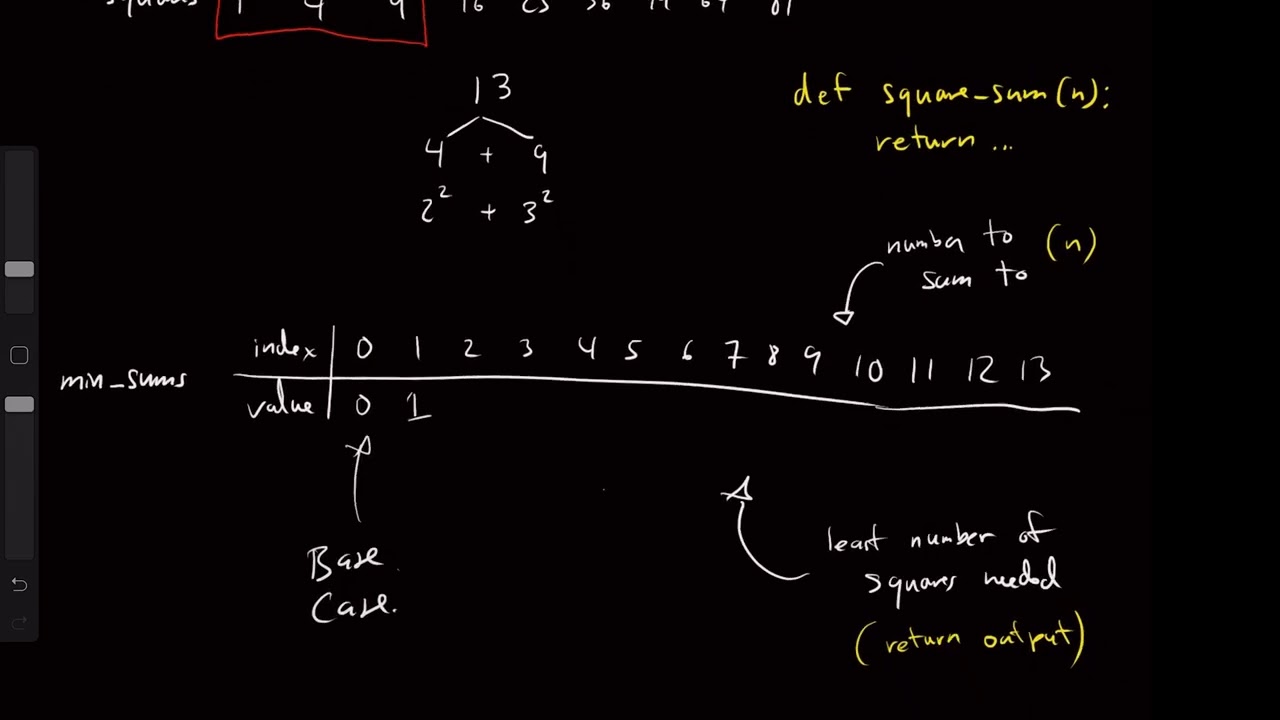 squares 1 4 9 16 25 36 49 64 81
13
4 + 9
2² + 3²
def square_sum(n):
return ...
number to (n)
sum to
min_sums
index 0 1 2 3 4 5 6 7 8 9 10 11 12 13
value 0 1
Base
Case.
least number of
squares needed
(return output)